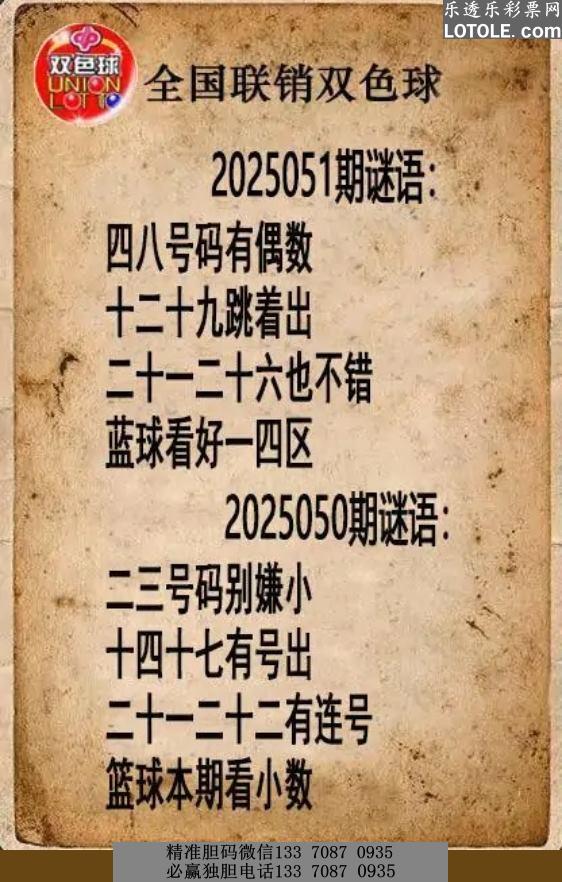 乐透乐彩票网
LOTOLE.com
双色球
UNION
LOTTO
全国联销双色球
2025051期谜语:
四八号码有偶数
十二十九跳着出
二十一二十六也不错
蓝球看好一四区
2025050期谜语:
二三号码别嫌小
十四十七有号出
二十一二十二有连号
篮球本期看小数
精准胆码微信133 7087 0935
必赢独胆电话133 7087 0935